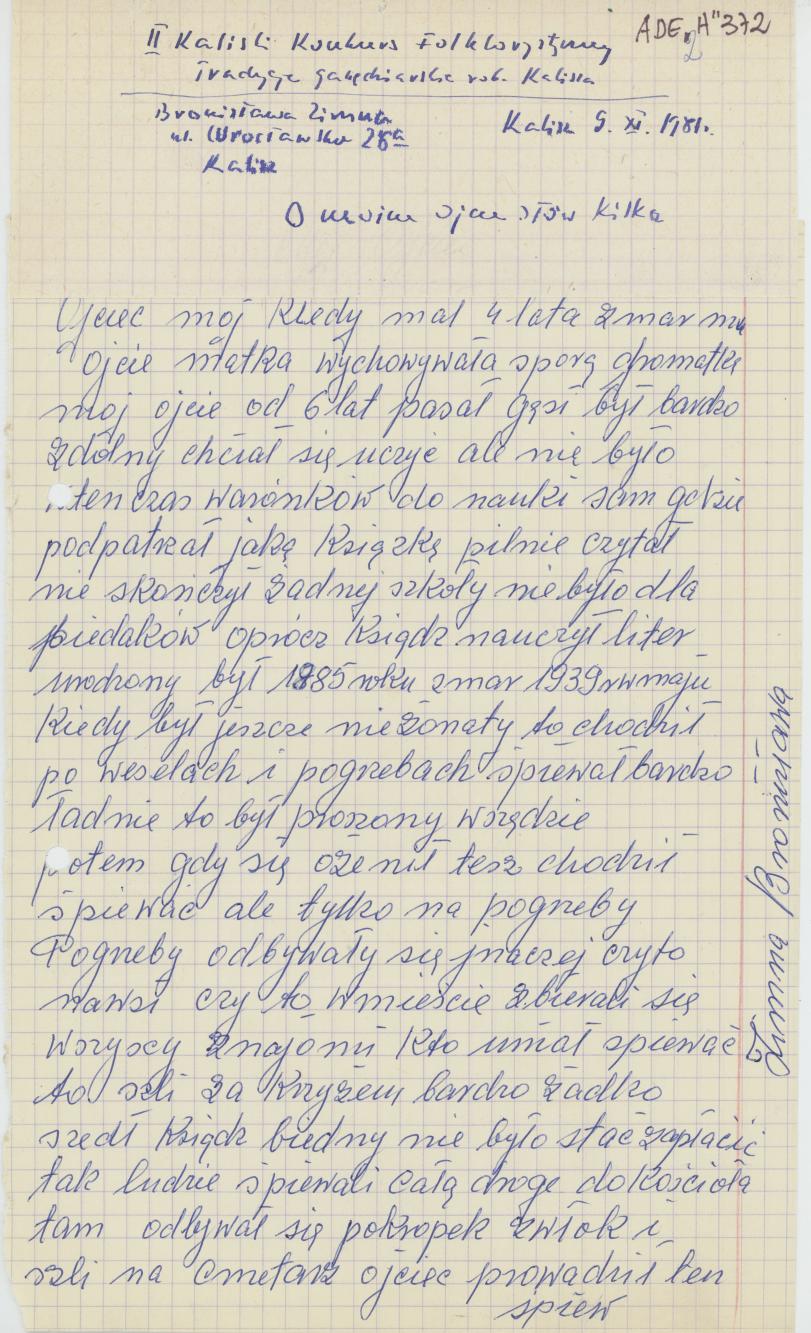 ADE "H" 372
2
II Kaliski Konkurs Folklorystyczny
Tradycje gawędziarskie rob. Kalisza
Bronisława
ul. Wrocławska 28a
Kalisz
Kalisz 9. XI. 1981r.
O moim ojcu słów kilka
Ojciec mój Kiedy mał 4 lata zmar mu
ojcie matka wychowywała sporą gromatkę
moj ojcie od 6 lat pasał gęsi był bardzo
zdolny chciał się uczyć ale nie było
wtenczas warónków do nauki sam gdzie
podpatrzał jaką Książkę pilnie czytał
nie skończył żadnej szkoły nie było dla
biedaków oprócz Ksiądz nauczył liter
urodzony był 1885 roku zmar 1939r w maju
Kiedy był jeszcze nieżonaty to chodził
po weselach i pogrzebach śpiewał bardzo
ładnie to był proszony wszędzie
potem gdy się ożenił tesz chodził
śpiewać ale tylko na pogrzeby
Pogrzeby odbywały się jnaczej czyto
nawsi czy to wmieście zbierali się
wszyscy znajomi Kto umiał spiewać
to szli za Krzyżem bardzo żadko
szedł Ksiądz biedny nie było stać zapłacić
tak ludzie śpiewali całą droge do Kościoła
tam odbywał się pokropek zwłok i
szli na cmetarz ojciec prowadził ten
śpiew